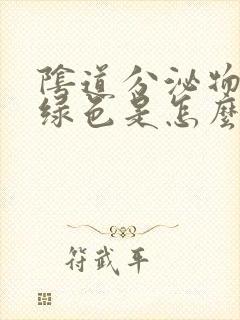 陰道分泌物
綠色是怎麼
符武平